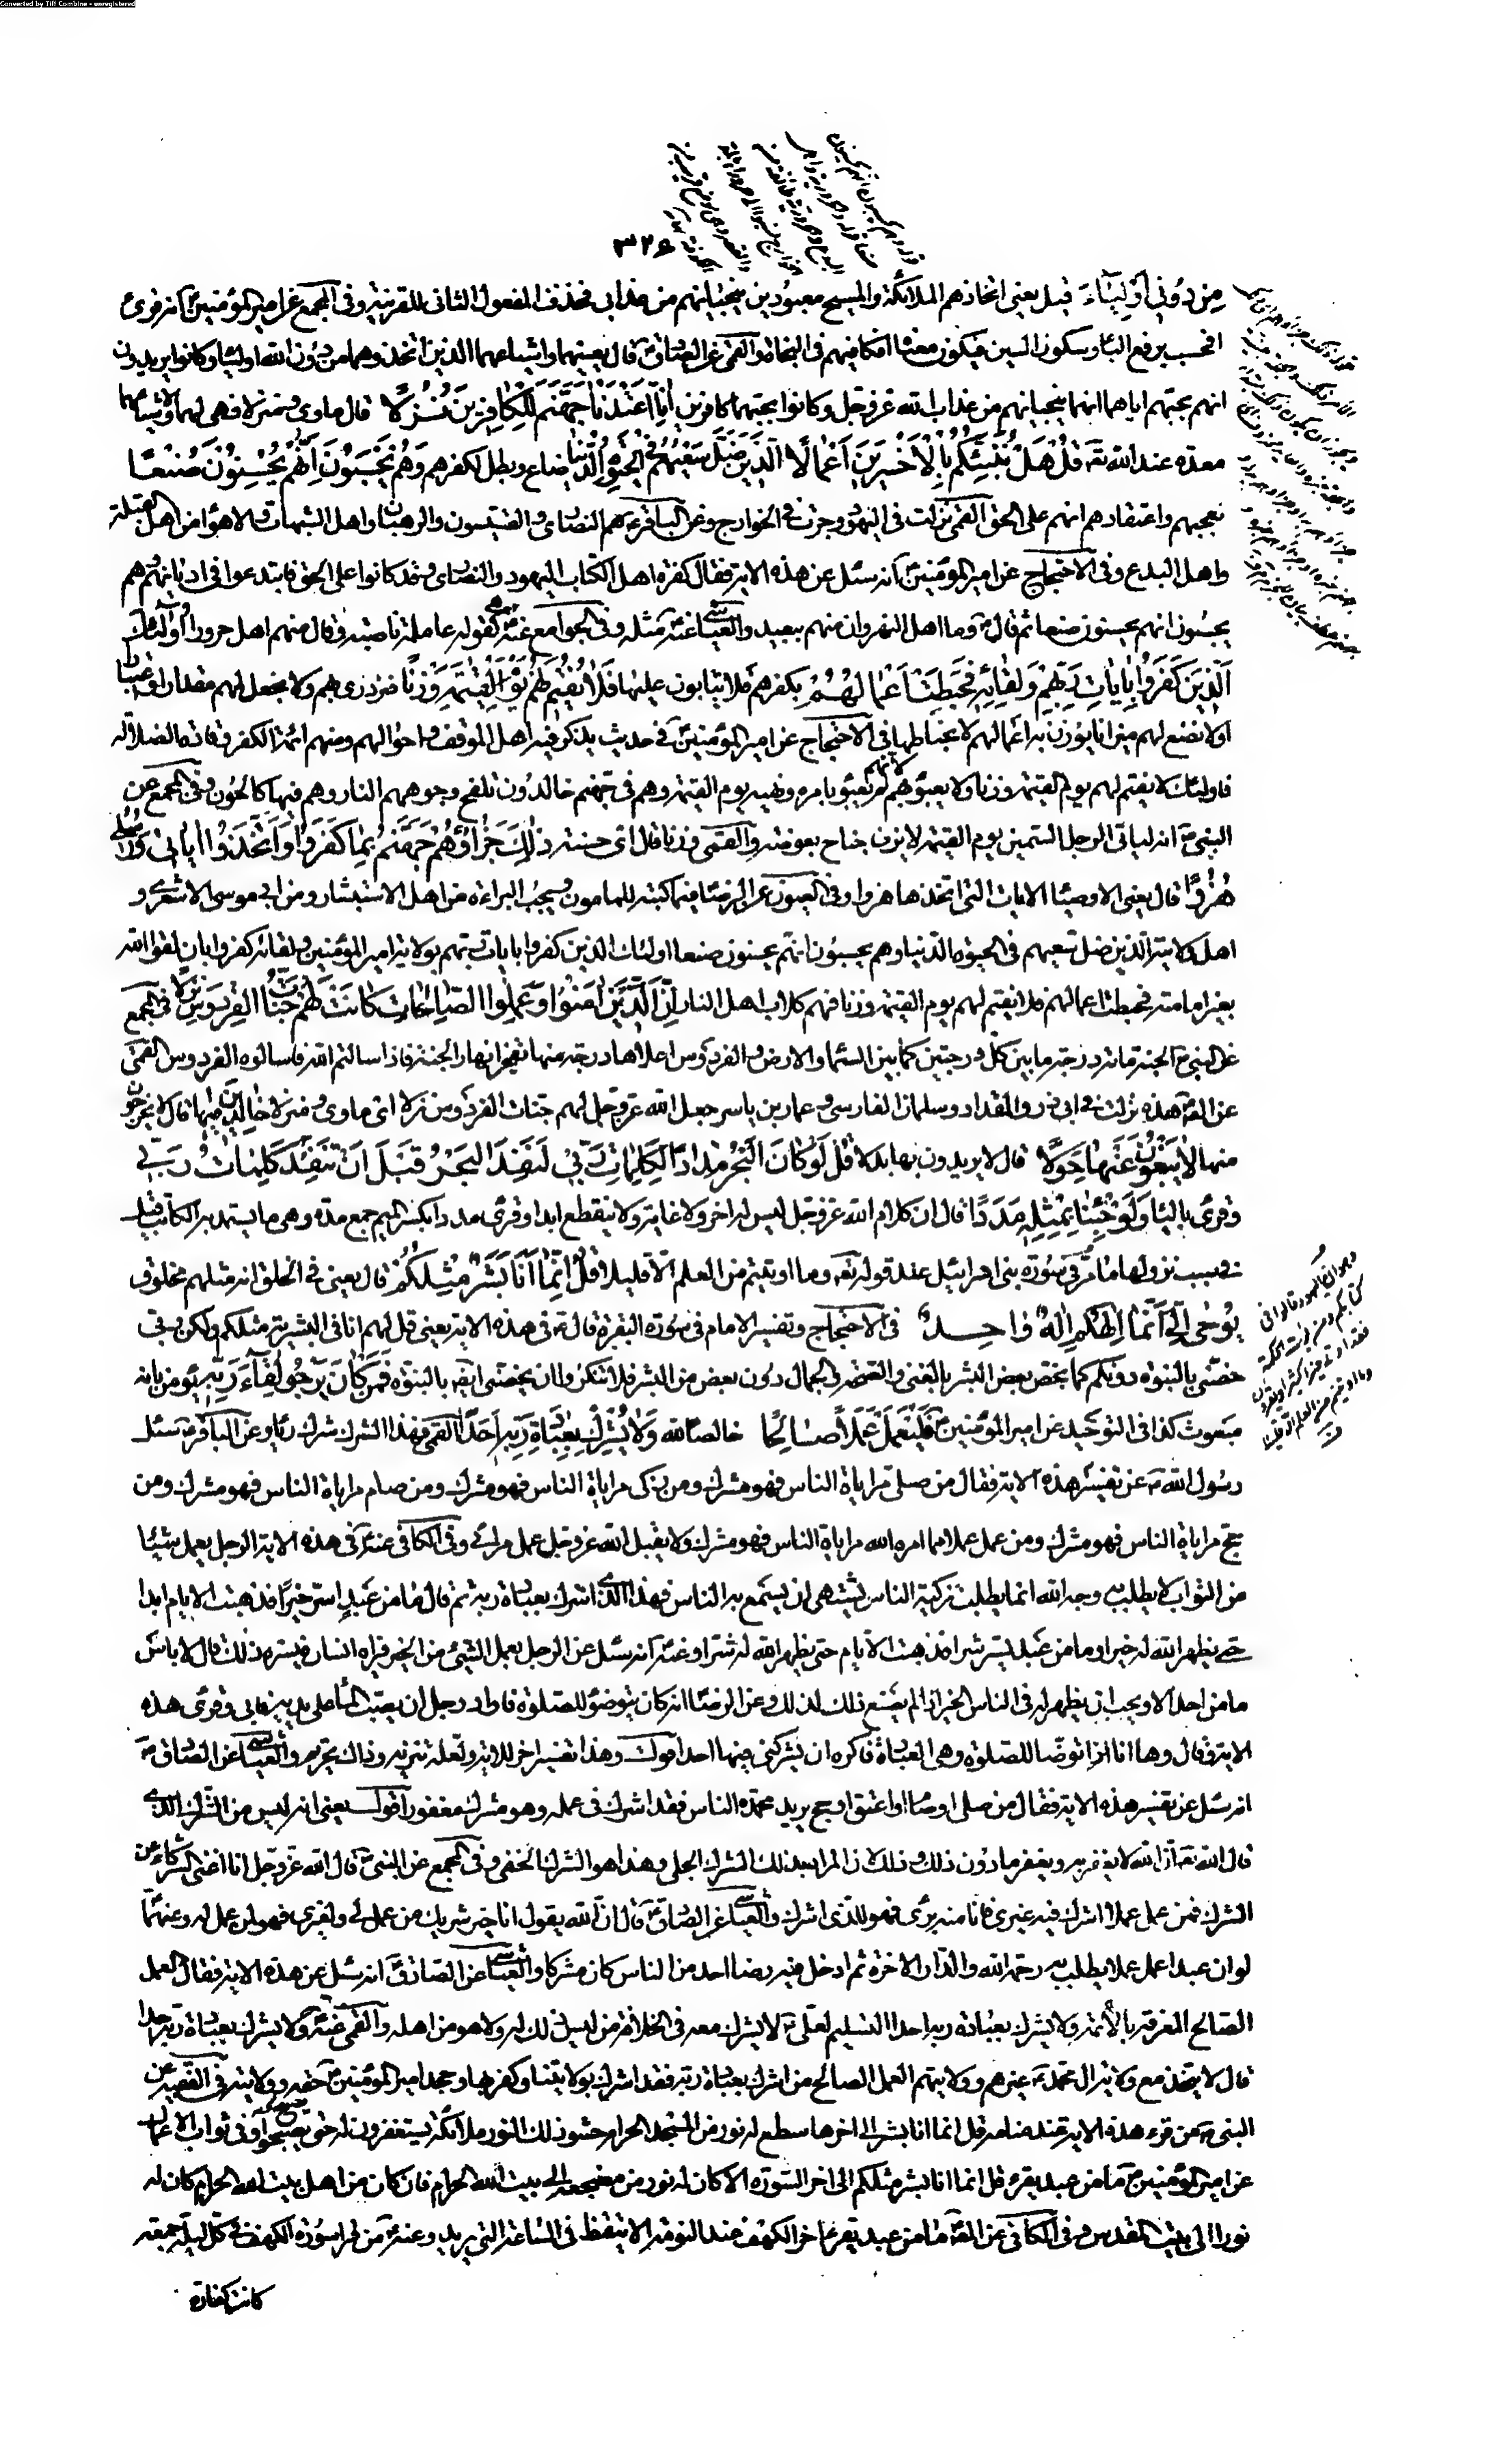 Converted by Tiff Combine - unregistered
٣٢٤
مِن دُونِي أَوْلِيَاءَ قيل يعني اتخاذهم الملائكة والمسيح معبودين ينجيانهم من عذابي فحذف المفعول الثاني للقرينة وفي المجمع عن امير المؤمنين انه قرئ
افحسب برفع الباء وسكون السين فيكون معناه افكافيهم في النجاة والقمي عن الصادق قال يعنيهما واشياعهما الذين اتخذوهما من دون الله اولياء وكانوا يريدون
انهم بحبهم اياهما انهما ينجيانهم من عذاب الله عز وجل وكانوا بحبهما كافرين إِنَّا أَعْتَدْنَا جَهَنَّمَ لِلْكَافِرِينَ نُزُلًا قال ماوى ومنزلا فهي لهما ولاشياعهما
معدة عند الله تعه قُلْ هَلْ نُنَبِّئُكُم بِالْأَخْسَرِينَ أَعْمَالًا الَّذِينَ ضَلَّ سَعْيُهُمْ فِي الْحَيٰوةِ الدُّنْيَا ضاع وبطل لكفرهم وَهُمْ يَحْسَبُونَ أَنَّهُمْ يُحْسِنُونَ صُنْعًا
بعجبهم واعتقادهم انهم على الحق القمي نزلت في اليهود وجرت في الخوارج وعن الباقر هم النصارى والقسيسون والرهبان واهل الشبهات والاهواء من اهل القبلة
واهل البدع وفي الاحتجاج عن امير المؤمنين انه سئل عن هذه الاية فقال كفرة اهل الكتاب اليهود والنصارى وقد كانوا على الحق فابتدعوا في اديانهم وهم
يحسبون انهم يحسنون صنعا ثم قال وما اهل النهروان منهم ببعيد والعياشي عنه مثله وفي الجوامع عنه كقوله عاملة ناصبة وقال منهم اهل حرورا أُولَٰئِكَ
الَّذِينَ كَفَرُوا بِآيَاتِ رَبِّهِمْ وَلِقَائِهِ فَحَبِطَتْ أَعْمَالُهُمْ بكفرهم فلا يثابون عليها فَلَا نُقِيمُ لَهُمْ يَوْمَ الْقِيٰمَةِ وَزْنًا فنزدري بهم ولا نجعل لهم مقدارا واعتبارا
اولا نضع لهم ميزانا يوزن به اعمالهم لانحباطها في الاحتجاج عن امير المؤمنين في حديث يذكر فيه اهل الموقف واحوالهم ومنهم ائمة الكفر وقادة الضلالة
فاولئك لا يقيم لهم يوم القيمة وزنا ولا يعبؤ بهم لانهم لم يعبؤا بامره ونهيه يوم القيمة وهم في جهنم خالدون تلفح وجوههم النار وهم فيها كالحون وفي المجمع عن
النبي انه لياتي الرجل السمين يوم القيمة لا يزن جناح بعوضة والقمي وزنا قال اي حسنة ذَٰلِكَ جَزَاؤُهُمْ جَهَنَّمُ بِمَا كَفَرُوا وَاتَّخَذُوا آيَاتِي وَرُسُلِي
هُزُوًا قال يعني الاوصياء الايات التي اتخذها هزوا وفي العيون عن الرضا فيما كتبه للمامون ويجب البراءة من اهل الاستيثار ومن ابي موسى الاشعري و
اهل ولايته الذين ضل سعيهم في الحيوة الدنيا وهم يحسبون انهم يحسنون صنعا اولئك الذين كفروا بايات ربهم بولاية امير المؤمنين ولقائه كفروا بان لقوا الله
بغير امامته فحبطت اعمالهم فلا نقيم لهم يوم القيمة وزنا فهم كلاب اهل النار إِنَّ الَّذِينَ آمَنُوا وَعَمِلُوا الصَّالِحَاتِ كَانَتْ لَهُمْ جَنَّاتُ الْفِرْدَوْسِ نُزُلًا في المجمع
عن النبي الجنة مائة درجة ما بين كل درجتين كما بين السماء والارض والفردوس اعلاها درجة منها تفجر انهار الجنة فاذا سالتم الله فاسالوه الفردوس القمي
عن الصادق هذه نزلت في ابي ذر والمقداد وسلمان الفارسي وعمار بن ياسر جعل الله عز وجل لهم جنات الفردوس نزلا اي ماوى ومنزلا خَالِدِينَ فِيهَا قال لا يخرجون
منها لَا يَبْغُونَ عَنْهَا حِوَلًا قال لا يريدون بها بدلا قُل لَّوْ كَانَ الْبَحْرُ مِدَادًا لِّكَلِمَاتِ رَبِّي لَنَفِدَ الْبَحْرُ قَبْلَ أَن تَنفَدَ كَلِمَاتُ رَبِّي
وقرئ بالياء وَلَوْ جِئْنَا بِمِثْلِهِ مَدَدًا قال ان كلام الله عز وجل ليس له اخر ولا غاية ولا ينقطع ابدا وقرئ مددا بكسر الميم جمع مدة وهي ما يستمد به الكاتب قيل
سبب نزولها ما مر في سورة بني اسرائيل عند قوله تعه وما اوتيتم من العلم الا قليلا قُلْ إِنَّمَا أَنَا بَشَرٌ مِّثْلُكُمْ قال يعني في الخلق انه مثلهم مخلوق
يُوحَىٰ إِلَيَّ أَنَّمَا إِلَٰهُكُمْ إِلَٰهٌ وَاحِدٌ في الاحتجاج وتفسير الامام في سورة البقرة قال في هذه الاية يعني قل لهم انا في البشرية مثلكم ولكن ربي
خصني بالنبوة دونكم كما يخص بعض البشر بالغنى والصحة والجمال دون بعض من البشر فلا تنكروا ان يخصني ايضا بالنبوة فَمَن كَانَ يَرْجُو لِقَاءَ رَبِّهِ يؤمن بانه
مبعوث كذا في التوحيد عن امير المؤمنين فَلْيَعْمَلْ عَمَلًا صَالِحًا خالصا لله وَلَا يُشْرِكْ بِعِبَادَةِ رَبِّهِ أَحَدًا القمي فهذا الشرك شرك رياء وعن الباقر سئل
رسول الله عن تفسير هذه الاية فقال من صلى مراياة الناس فهو مشرك ومن زكى مراياة الناس فهو مشرك ومن صام مراياة الناس فهو مشرك ومن
حج مراياة الناس فهو مشرك ومن عمل عملا مما امره الله مراياة الناس فهو مشرك ولا يقبل الله عز وجل عمل مرائي وفي الكافي عنه في هذه الاية الرجل يعمل شيئا
من الثواب لا يطلب به وجه الله انما يطلب تزكية الناس يشتهي ان يسمع به الناس فهذا الذي اشرك بعبادة ربه ثم قال ما من عبد اسر خيرا فذهبت الايام ابدا
حتى يظهر الله له خيرا وما من عبد يسر شرا فذهبت الايام حتى يظهر الله له شرا وعنه انه سئل عن الرجل يعمل الشيء من الخير فيراه انسان فيسره ذلك قال لا باس
ما من احد الا ويحب ان يظهر له في الناس الخير اذا لم يصنع ذلك لذلك وعن الرضا انه كان يتوضؤ للصلوة فاراد رجل ان يصب الماء على يديه فابى وقرئ هذه
الاية وقال وها انا اذا اتوضا للصلوة وهي العبادة فاكره ان يشركني فيها احد اقول وهذا تفسير اخر للاية ولعله تنزيه وذاك تحريم والعياشي عن الصادق
انه سئل عن تفسير هذه الاية فقال من صلى او صام او اعتق او حج يريد محمدة الناس فقد اشرك في عمله وهو مشرك مغفور اقول يعني انه ليس من الشرك الذي
قال الله تعه ان الله لا يغفر ان يشرك به ويغفر ما دون ذلك وذلك لان المراد بذلك الشرك الجلي وهذا هو الشرك الخفي وفي المجمع عن النبي قال الله عز وجل انا اغنى الشركاء عن
الشرك فمن عمل عملا اشرك فيه غيري فانا منه بريء فهو للذي اشرك والعياشي عن الصادق قال ان الله يقول انا خير شريك من عمل لي ولغيري فهو لمن عمل له وعنهما
لو ان عبدا عمل عملا يطلب به رحمة الله والدار الاخرة ثم ادخل فيه رضا احد من الناس كان مشركا والعياشي عن الصادق انه سئل عن هذه الاية فقال العمل
الصالح المعرفة بالائمة ولا يشرك بعبادة ربه احدا التسليم لعلي لا يشرك معه في الخلافة من ليس ذلك له ولا هو من اهله والقمي عنه ولا يشرك بعبادة ربه احدا
قال لا يتخذ مع ولاية ال محمد غيرهم وولايتهم العمل الصالح من اشرك بعبادة ربه فقد اشرك بولايتنا وكفر بها وجحد امير المؤمنين حقه وولايته في الفقيه عن
النبي من قرء هذه الاية عند منامه قل انما انا بشر الى اخرها سطع له نور من المسجد الحرام حشو ذلك النور ملائكة يستغفرون له حتى يصبح وفي ثواب الاعمال
عن امير المؤمنين ما من عبد يقرء قل انما انا بشر مثلكم الى اخر السورة الا كان له نور من مضجعه الى بيت الله الحرام فان كان من اهل بيت الله الحرام كان له
نورا الى بيت المقدس وفي الكافي عن الصادق ما من عبد يقرء اخر الكهف عند النوم الا تيقظ في الساعة التي يريد وعنه من قرء سورة الكهف في كل ليلة جمعة
كانت كفارة